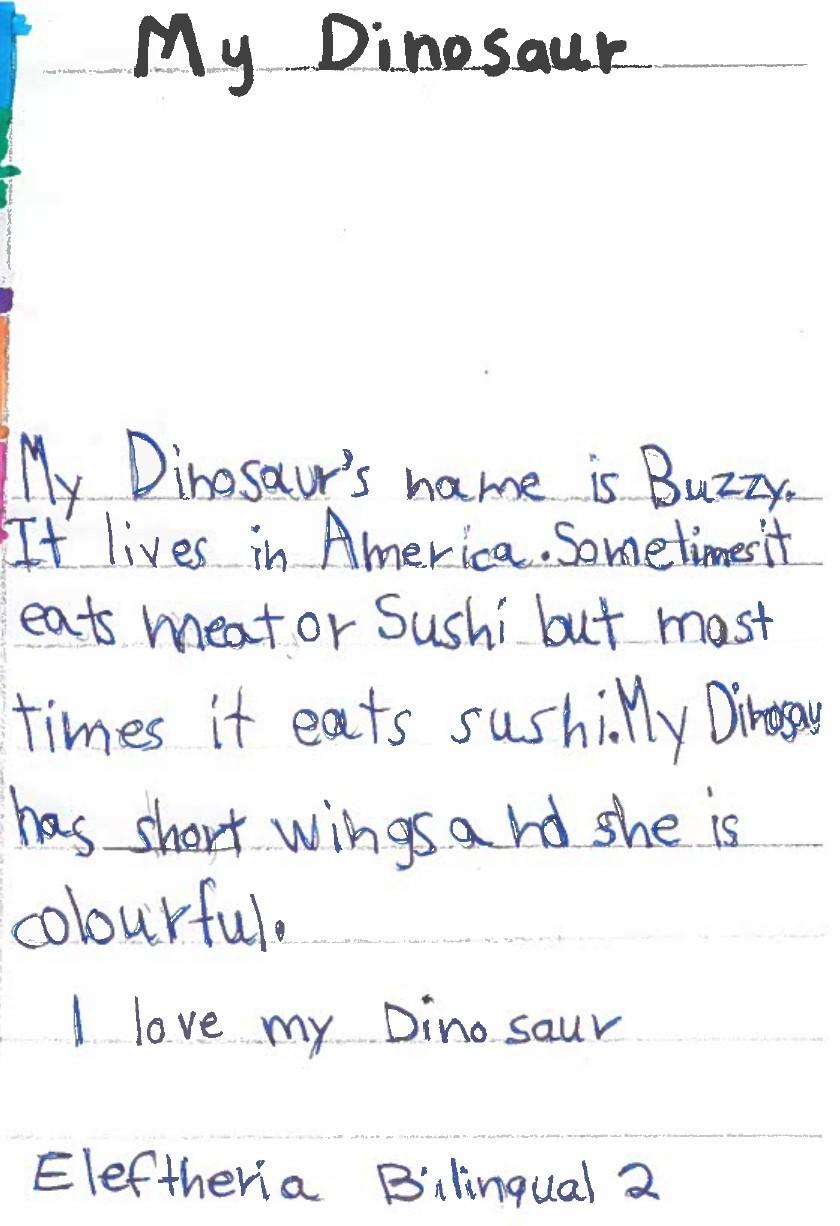 My Dinosaur
My Dinosaur's name is Buzzy.
It lives in America. Sometimes it
eats meat or Sushi but most
times it eats sushi. My Dinosau
has short wings and she is
colourful.
I love my Dinosaur
Eleftheria Bilingual 2